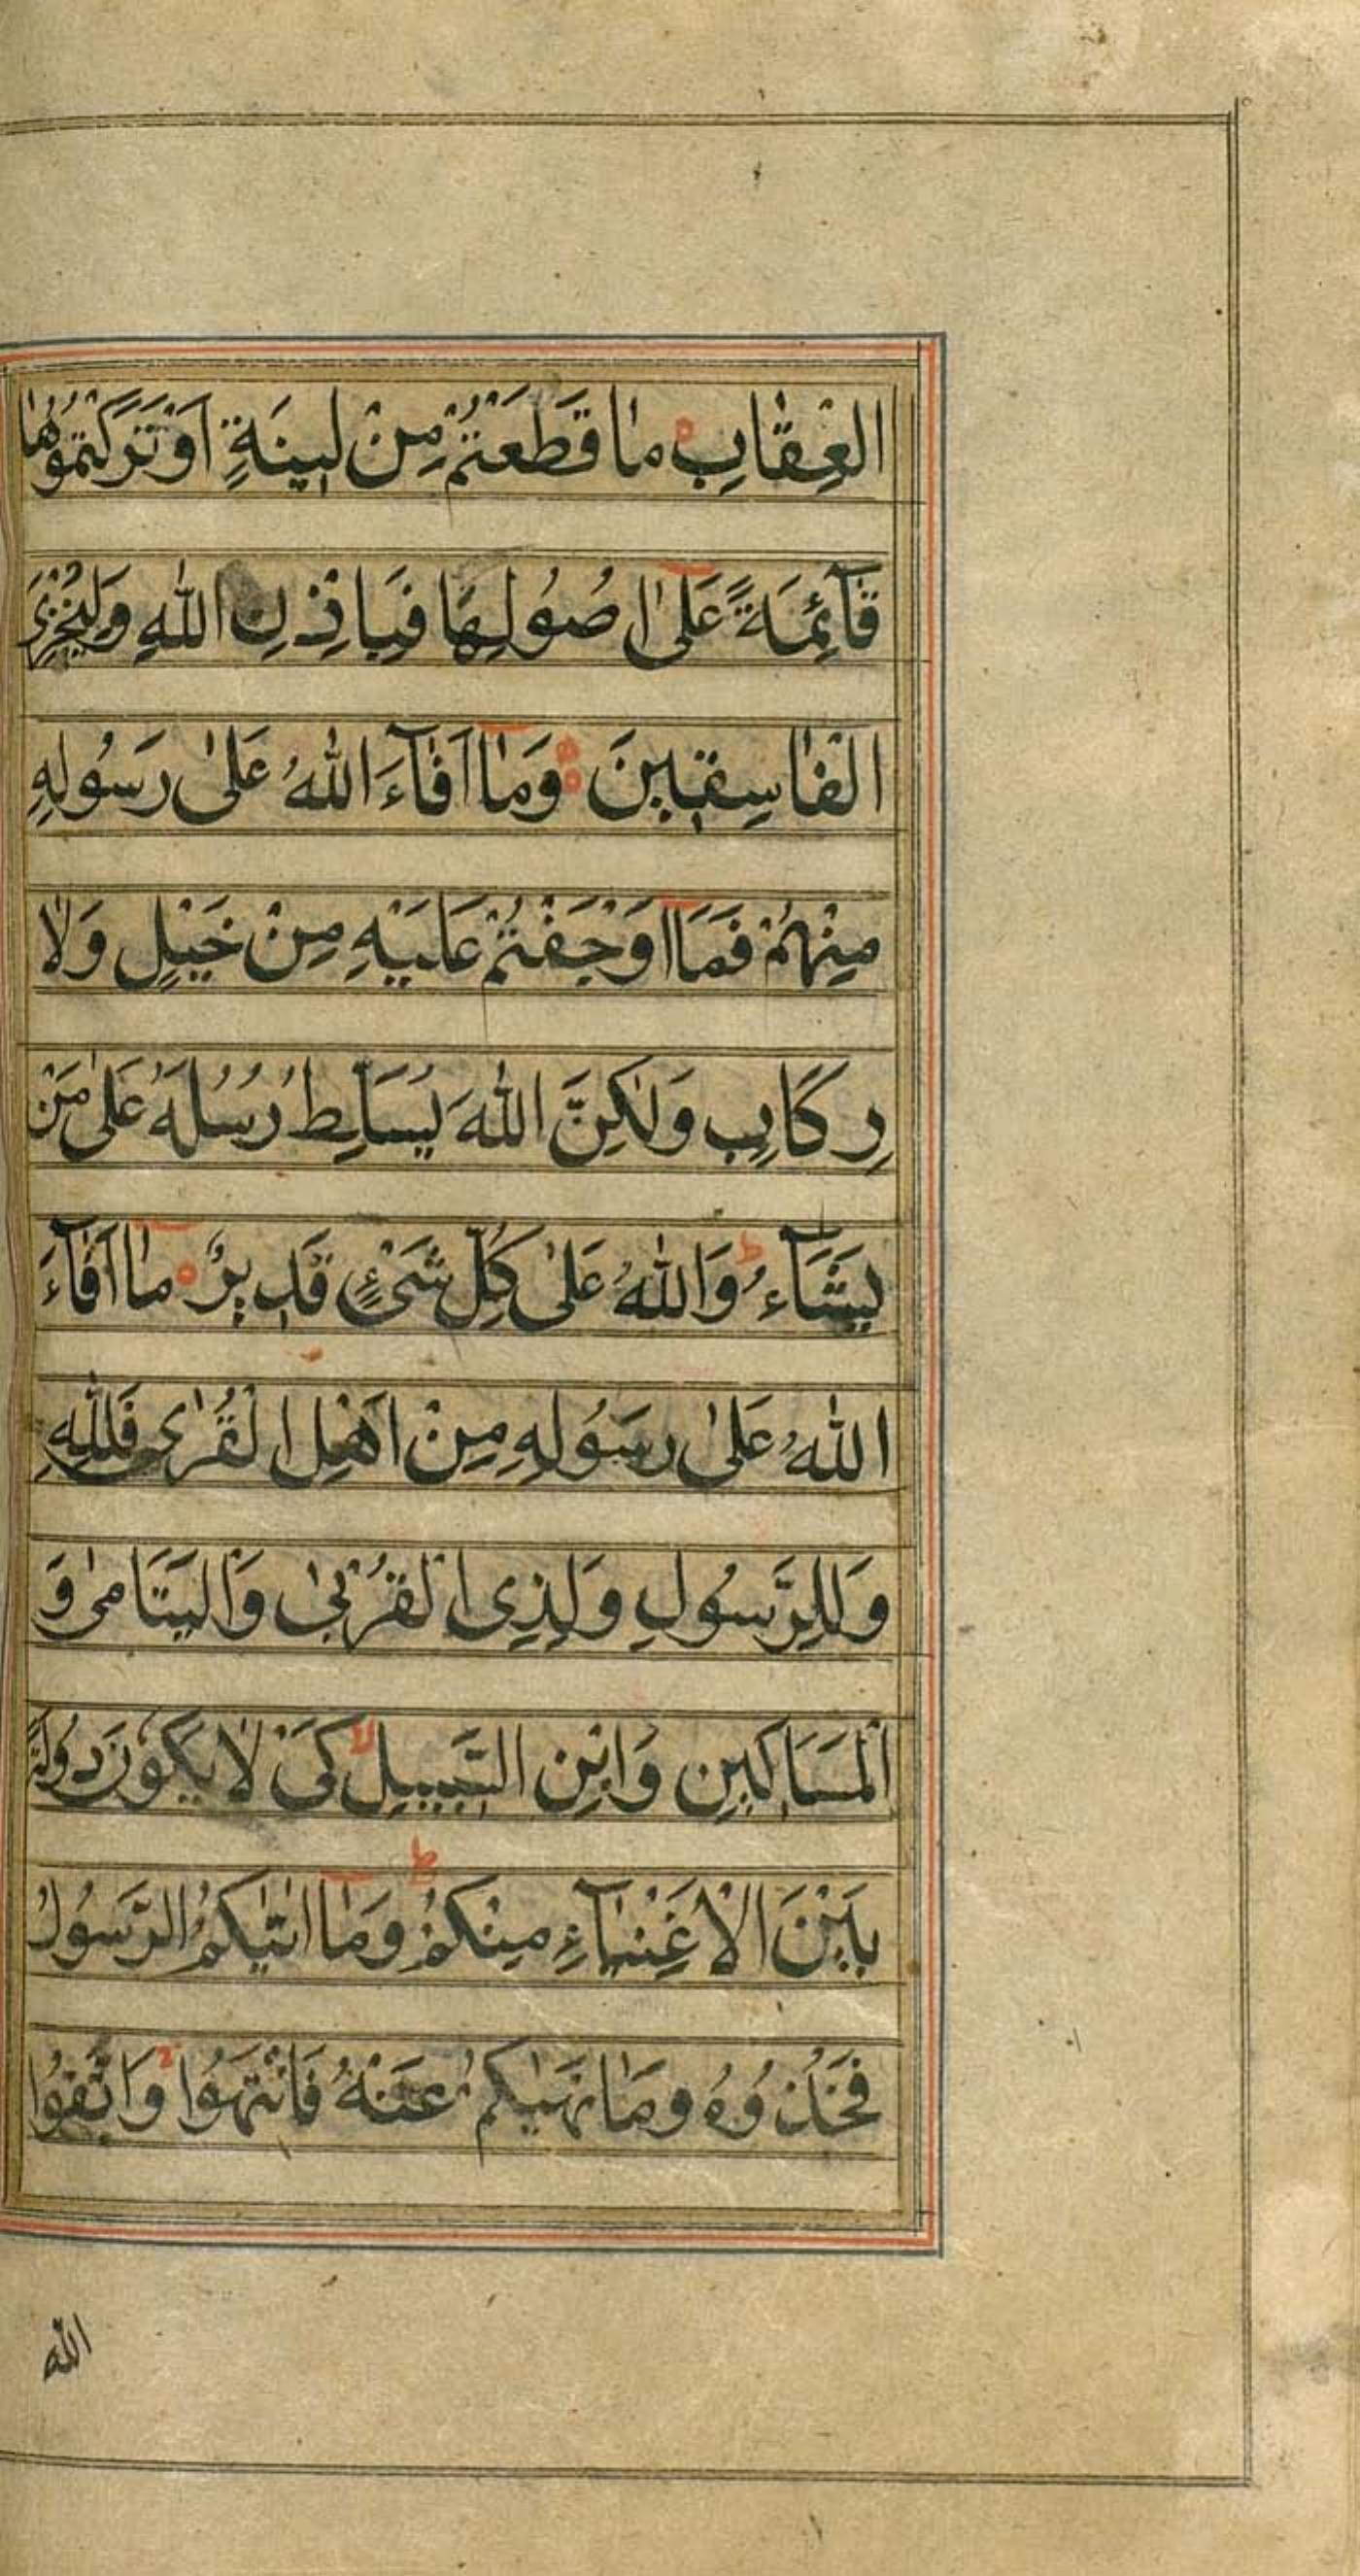 الْعِقَابِ مَا قَطَعْتُمْ مِنْ لِينَةٍ اَوْ تَرَكْتُمُوْهَا
قَآئِمَةً عَلٰٓى اُصُوْلِهَا فَبِاِذْنِ اللّٰهِ وَلِيُخْزِيَ
الْفَاسِقِيْنَ وَمَآ اَفَآءَ اللّٰهُ عَلٰى رَسُوْلِهِ
مِنْهُمْ فَمَآ اَوْجَفْتُمْ عَلَيْهِ مِنْ خَيْلٍ وَلَا
رِكَابٍ وَلٰكِنَّ اللّٰهَ يُسَلِّطُ رُسُلَهُ عَلٰى مَنْ
يَشَآءُ ط وَاللّٰهُ عَلٰى كُلِّ شَيْءٍ قَدِيْرٌ مَآ اَفَآءَ
اللّٰهُ عَلٰى رَسُوْلِهِ مِنْ اَهْلِ الْقُرٰى فَلِلّٰهِ
وَلِلرَّسُوْلِ وَلِذِى الْقُرْبٰى وَالْيَتَامٰى وَ
الْمَسَاكِيْنِ وَابْنِ السَّبِيْلِ لا كَيْ لَا يَكُوْنَ دُوْلَةً
بَيْنَ الْاَغْنِيَآءِ مِنْكُمْ ط وَمَآ اٰتٰيكُمُ الرَّسُوْلُ
فَخُذُوْهُ وَمَا نَهٰيكُمْ عَنْهُ فَانْتَهُوْا وَاتَّقُوْا
الله